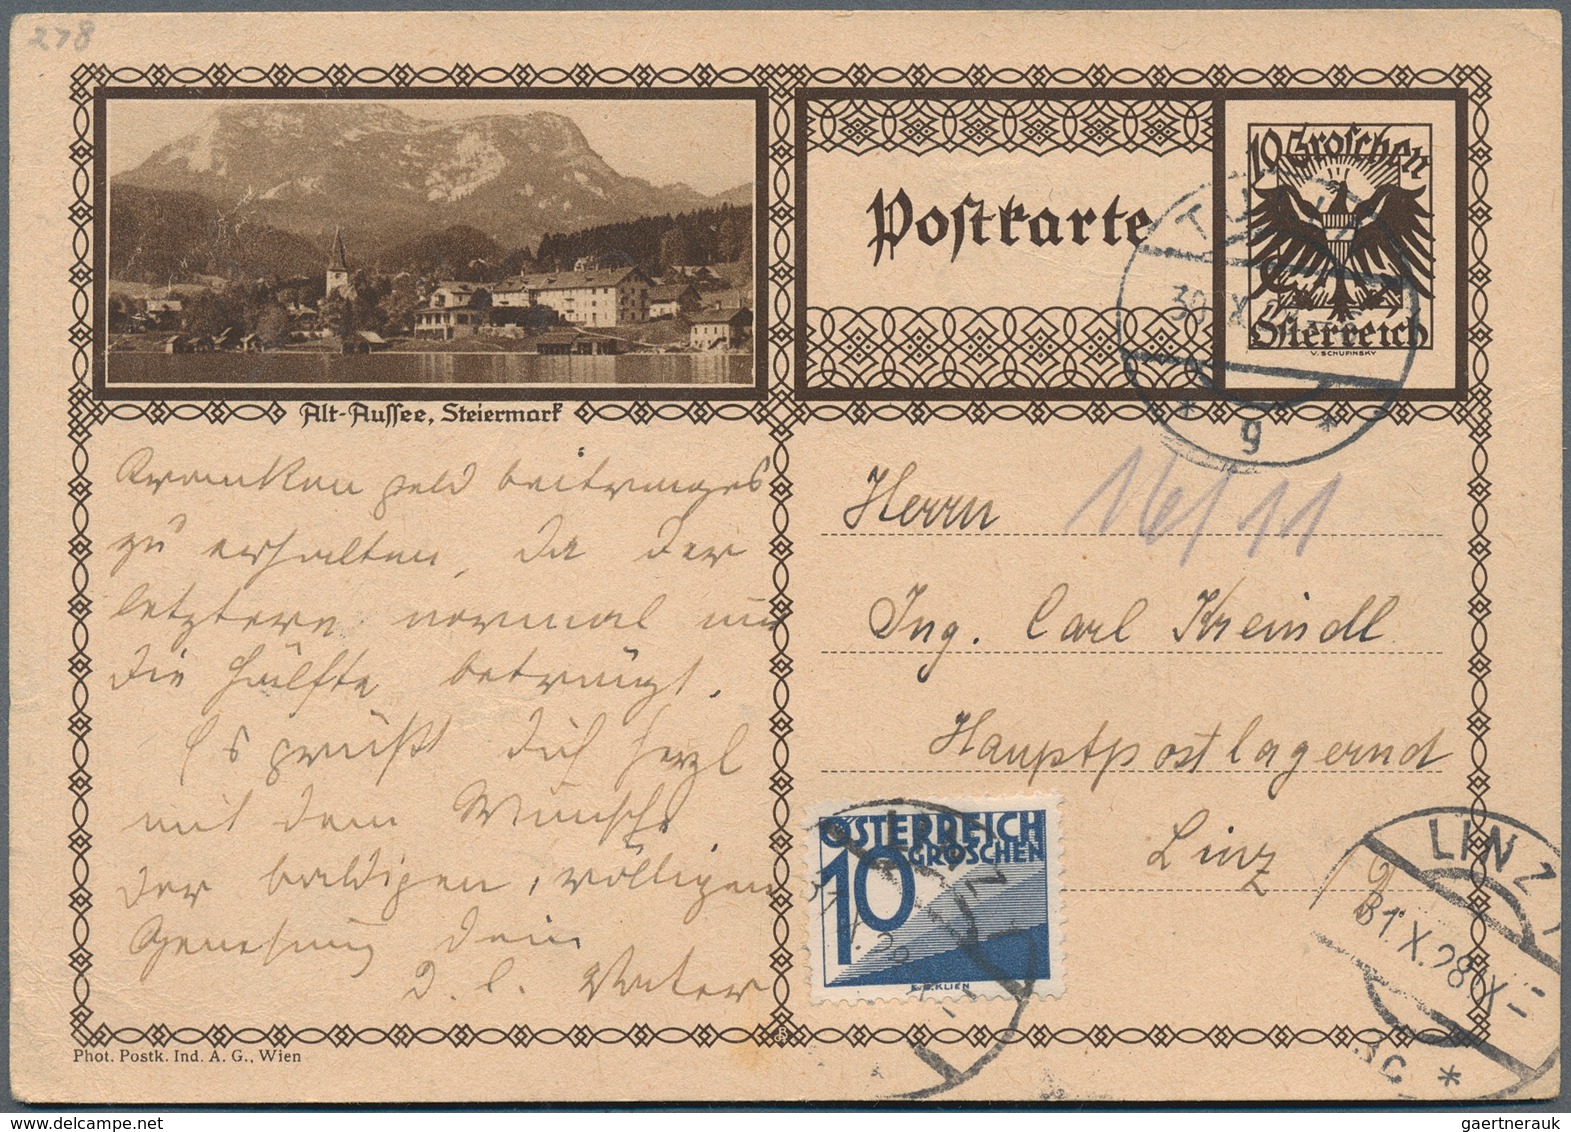 278
10 Groschen
Postkarte
Österreich
V. SCHUFINSKY
TULLN
30. X.
* g *
Alt-Aussee, Steiermark
Krankengeldbeitrages
zu erhalten, da der
letztere normal nur
die Hälfte beträgt.
Es grüßt Dich herzl
mit dem Wunsche
der baldigen, völligen
Genesung Dein
d. l. Vater
Herrn
16/11
Ing. Carl Kreindl
Hauptpostlagernd
Linz
ÖSTERREICH
GROSCHEN
10
KLIEN
LINZ
31.X.28.IX
3c *
Phot. Postk. Ind. A. G., Wien
gaertnerauk